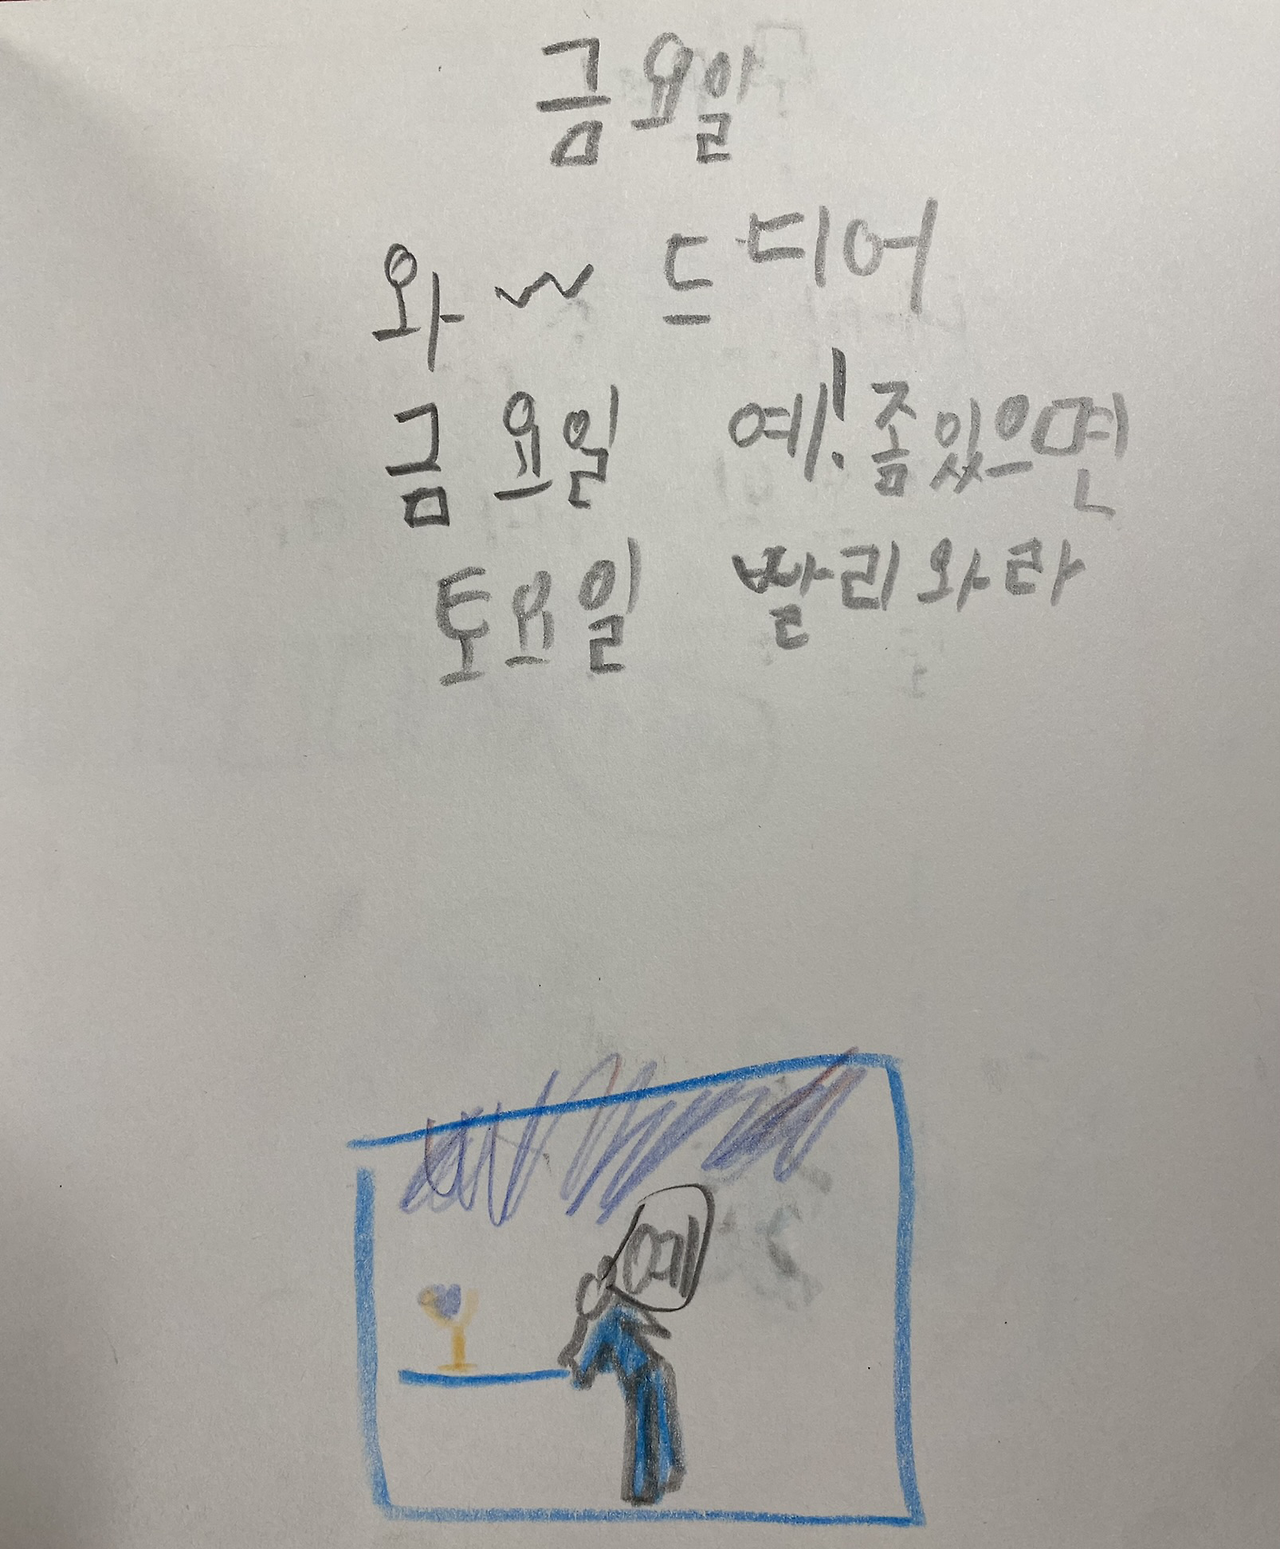 금요일
와~ 드디어
금요일 예! 좀있으면
토요일 빨리와라
예